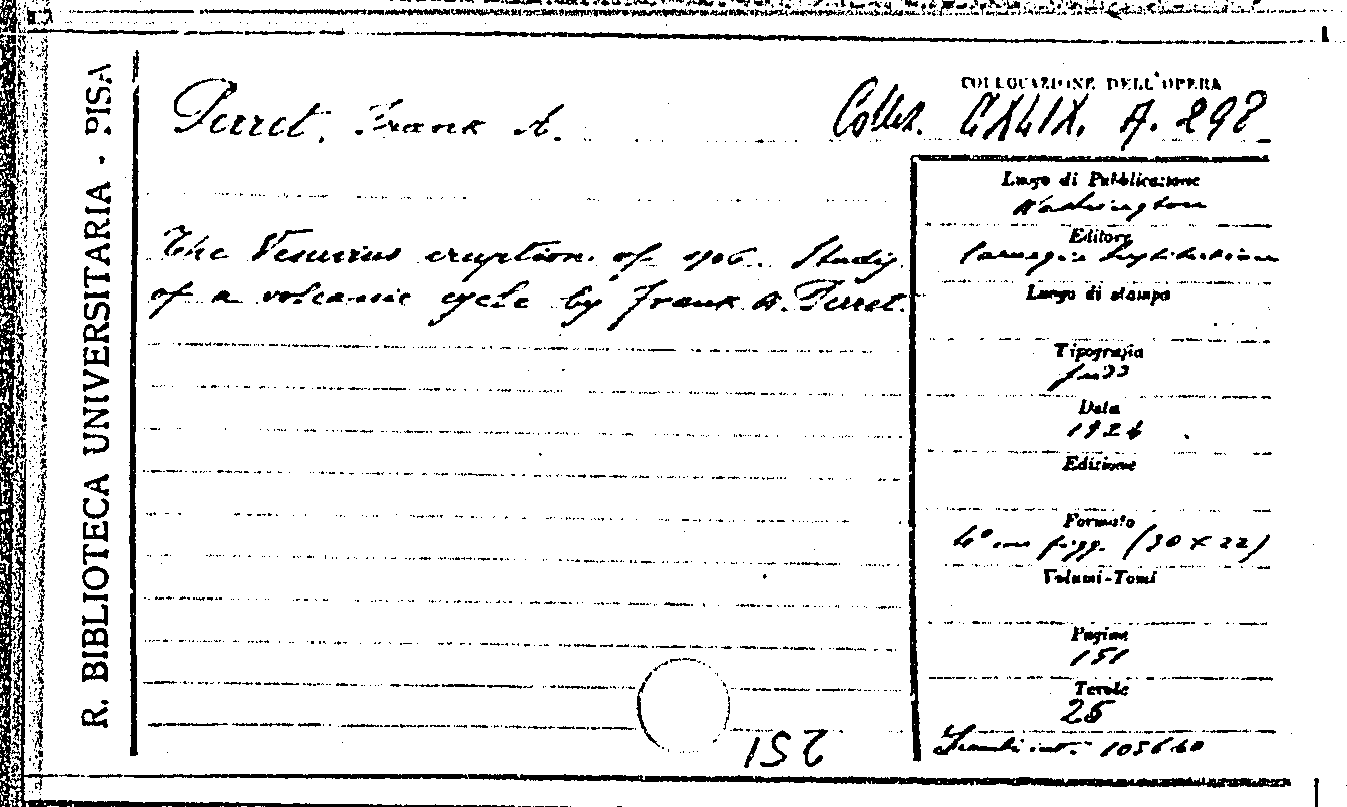 R. BIBLIOTECA UNIVERSITARIA - PISA
COLLOCAZIONE DELL'OPERA
Perret, Frank A.
Collez. CXLIX. A. 298
Luogo di Pubblicazione
Washington
Editore
Carnegie Institution
The Vesuvius eruption of 1906. Study
of a volcanic cycle by Frank A. Perret.
Luogo di stampa
Tipografia
Data
1924
Edizione
Formato
4° con figg. (30 x 22)
Volumi-Tomi
Pagine
151
Tavole
25
251
105640